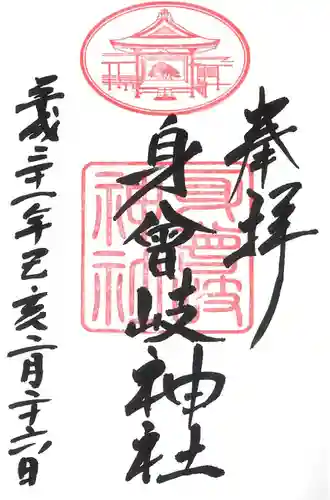 奉拝
身曾岐神社
平成三十一年己亥二月二十六日
身曾岐
神社